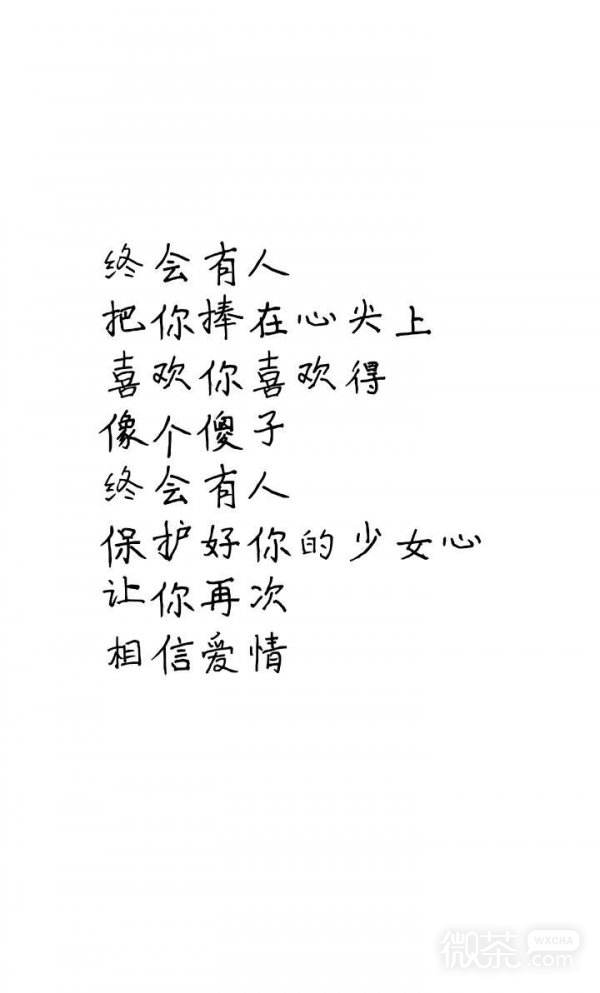 终会有人
把你捧在心尖上
喜欢你喜欢得
像个傻子
终会有人
保护好你的少女心
让你再次
相信爱情
微茶 WXCHA
.com